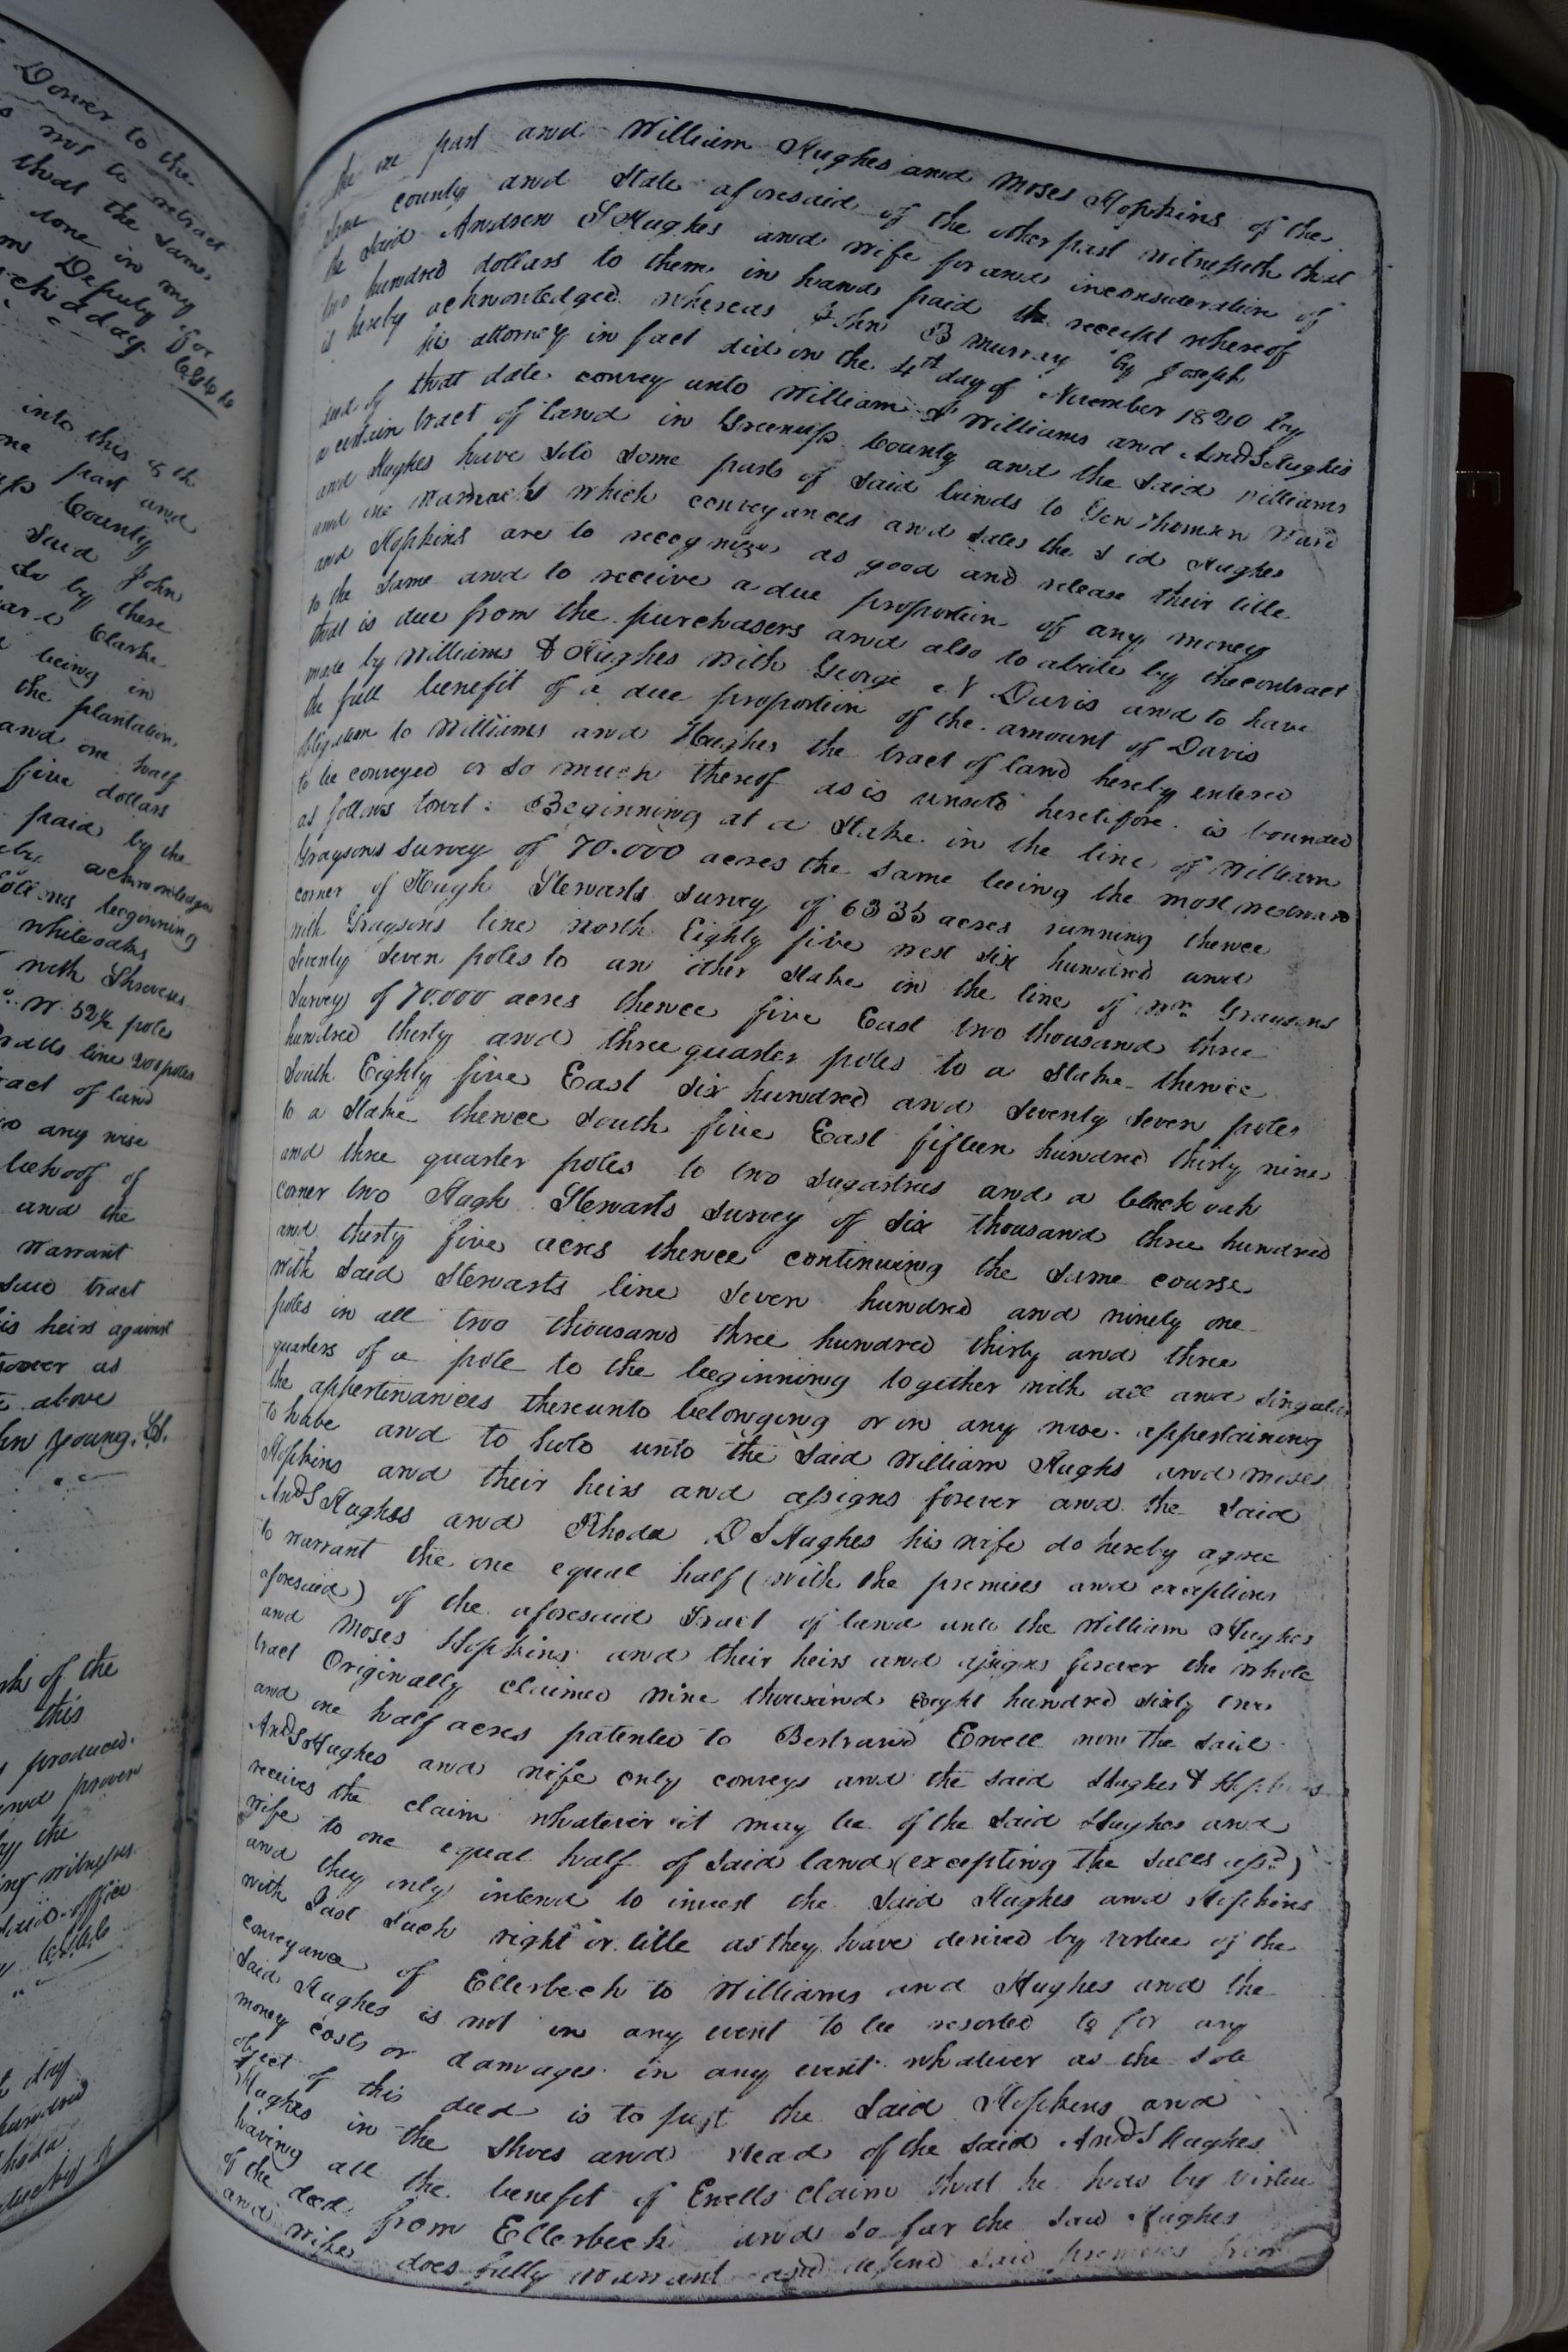 Dower to the
not to retract
that the same
done in my
Deputy for
into this 8th
one part and
County
Said John
do by these
Clarke
being in
the plantation
and one half
five dollars
paid by the
acknowledged
beginning
white oaks
with Shreves
W. 52½ poles
line 200 poles
tract of land
any wise
behoof of
and the
warrant
said tract
his heirs against
as
above
John Young. LS.
of the
this
produced.
and proven
by the
witnesses
office
day
hundred
the one part and William Hughes and Moses Hopkins of the
same county and State aforesaid of the other part witnesseth that
the said Andrew S Hughes and wife for and inconsideration of
two hundred dollars to them in hand paid the receipt whereof
is hereby acknowledged whereas John B Murray by Joseph
his attorney in fact did on the 4th day of November 1820 by
deed of that date convey unto William Williams and AndS Hughes
a certain tract of land in Greenup County and the said Williams
and Hughes have sold some parts of said lands to Gen Thomson Ward
and one which conveyances and sales the said Hughes
and Hopkins are to recognize as good and release their title
to the same and to receive a due proportion of any money
that is due from the purchasers and also to abide by thecontract
made by Williams & Hughes with George N Davis and to have
the full benefit of a due proportion of the amount of Davis
obligation to Williams and Hughes the tract of land hereby entered
to be conveyed or so much thereof as is unsold heretofore is bounded
as follows towit: Beginning at a Stake in the line of William
Graysons survey of 70.000 acres the same being the most westward
corner of Hugh Stewarts survey of 6335 acres running thence
with Graysons line north Eighty five west six hundred and
Seventy Seven poles to an other Stake in the line of Wm Graysons
Survey of 70.000 acres thence five East two thousand three
hundred thirty and three quarter poles to a Stake thence
South Eighty five East six hundred and seventy seven poles
to a Stake thence South five East fifteen hundred thirty nine
and three quarter poles to two sugartrees and a black oak
corner two Hugh Stewarts survey of six thousand three hundred
and thirty five acres thence continuing the same course
with said Stewarts line seven hundred and ninety one
poles in all two thousand three hundred thirty and three
quarters of a pole to the beginning together with all and singular
the appertinances thereunto belonging or in any wise appertaining
to have and to hold unto the said William Hughs and Moses
Hopkins and their heirs and assigns forever and the said
AndS Hughes and Rhoda D S Hughes his wife do hereby agree
to warrant the one equal half (with the premises and exceptions
aforesaid) of the aforesaid Tract of land unto the William Hughes
and Moses Hopkins and their heirs and assigns forever the whole
tract Originally claimed nine thousand eight hundred sixty two
and one half acres patented to Bertrand Ewell now the said
AndS Hughes and wife only conveys and the said Hughes & Hopkins
receives the claim whatever it may be of the said Hughes and
wife to one equal half of said land (excepting the sales afsd)
and they only intend to invest the said Hughes and Hopkins
with Just such right or title as they have derived by virtue of the
conveyance of Ellerbeck to Williams and Hughes and the
said Hughes is not in any event to be resorted to for any
money costs or damages in any event whatever as the sole
object of this deed is to put the said Hopkins and
Hughes in the shoes and stead of the said AndS Hughes
having all the benefit of Ewells claim that he has by virtue
of the deed from Ellerbeck and so far the said Hughes
and wife does fully warrant and defend said premises from